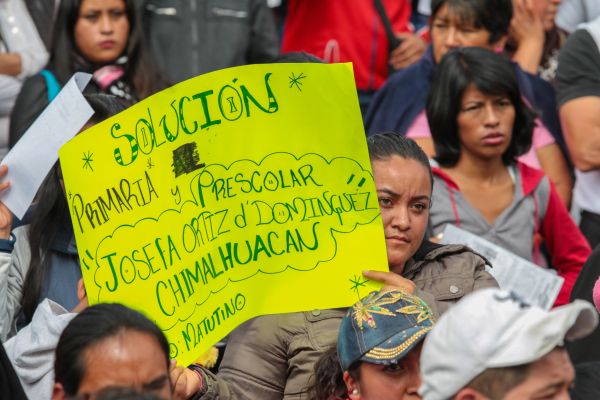 SOLUCIÓN
PRIMARIA y PRESCOLAR
"JOSEFA ORTIZ d' DOMINGUÉZ"
CHIMALHUACAN
MATUTINO